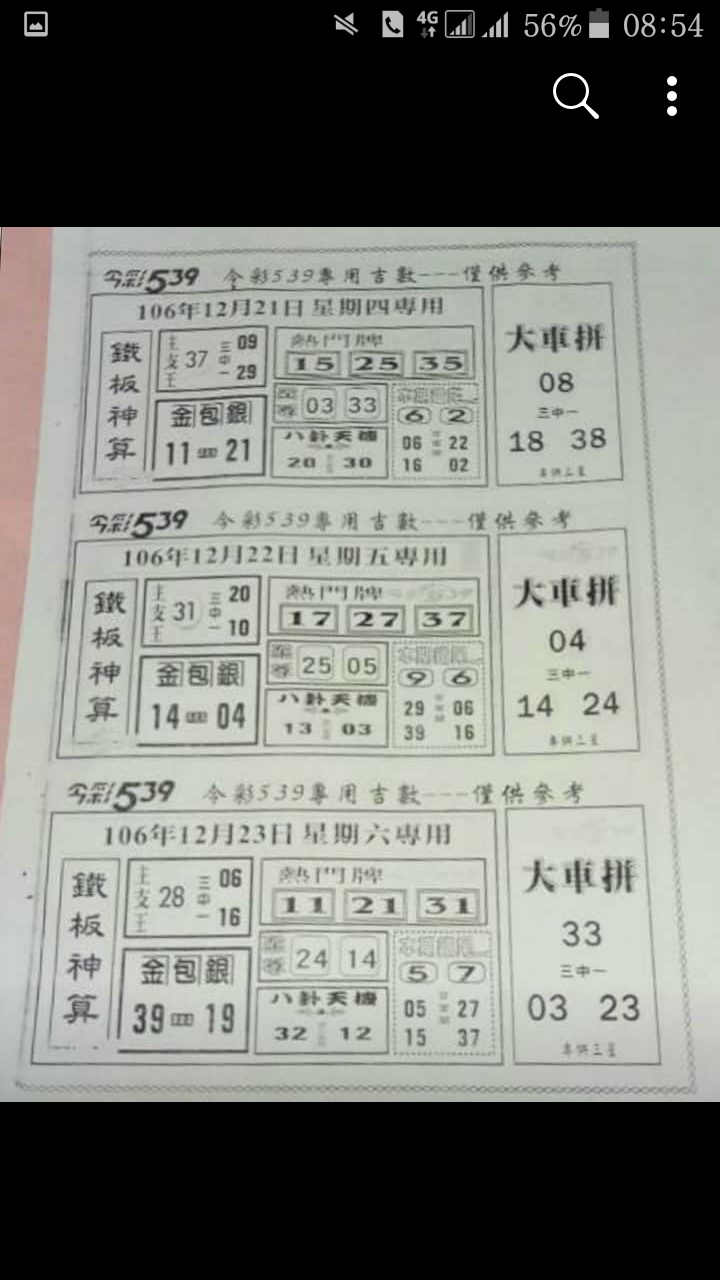 4G 56% 08:54
今彩539 今彩539專用吉數---僅供參考
106年12月21日星期四專用
鐵板神算
主支王 37 三中一 09 29
熱門牌
15 25 35
金包銀
11 21
至尊 03 33
八卦天機
20 30
6 2
06 22
16 02
大車拼
08
三中一
18 38
今彩539 今彩539專用吉數---僅供參考
106年12月22日星期五專用
鐵板神算
主支王 31 三中一 20 10
熱門牌
17 27 37
金包銀
14 04
至尊 25 05
八卦天機
13 03
9 6
29 06
39 16
大車拼
04
三中一
14 24
今彩539 今彩539專用吉數---僅供參考
106年12月23日星期六專用
鐵板神算
主支王 28 三中一 06 16
熱門牌
11 21 31
金包銀
39 19
至尊 24 14
八卦天機
32 12
5 7
05 27
15 37
大車拼
33
三中一
03 23